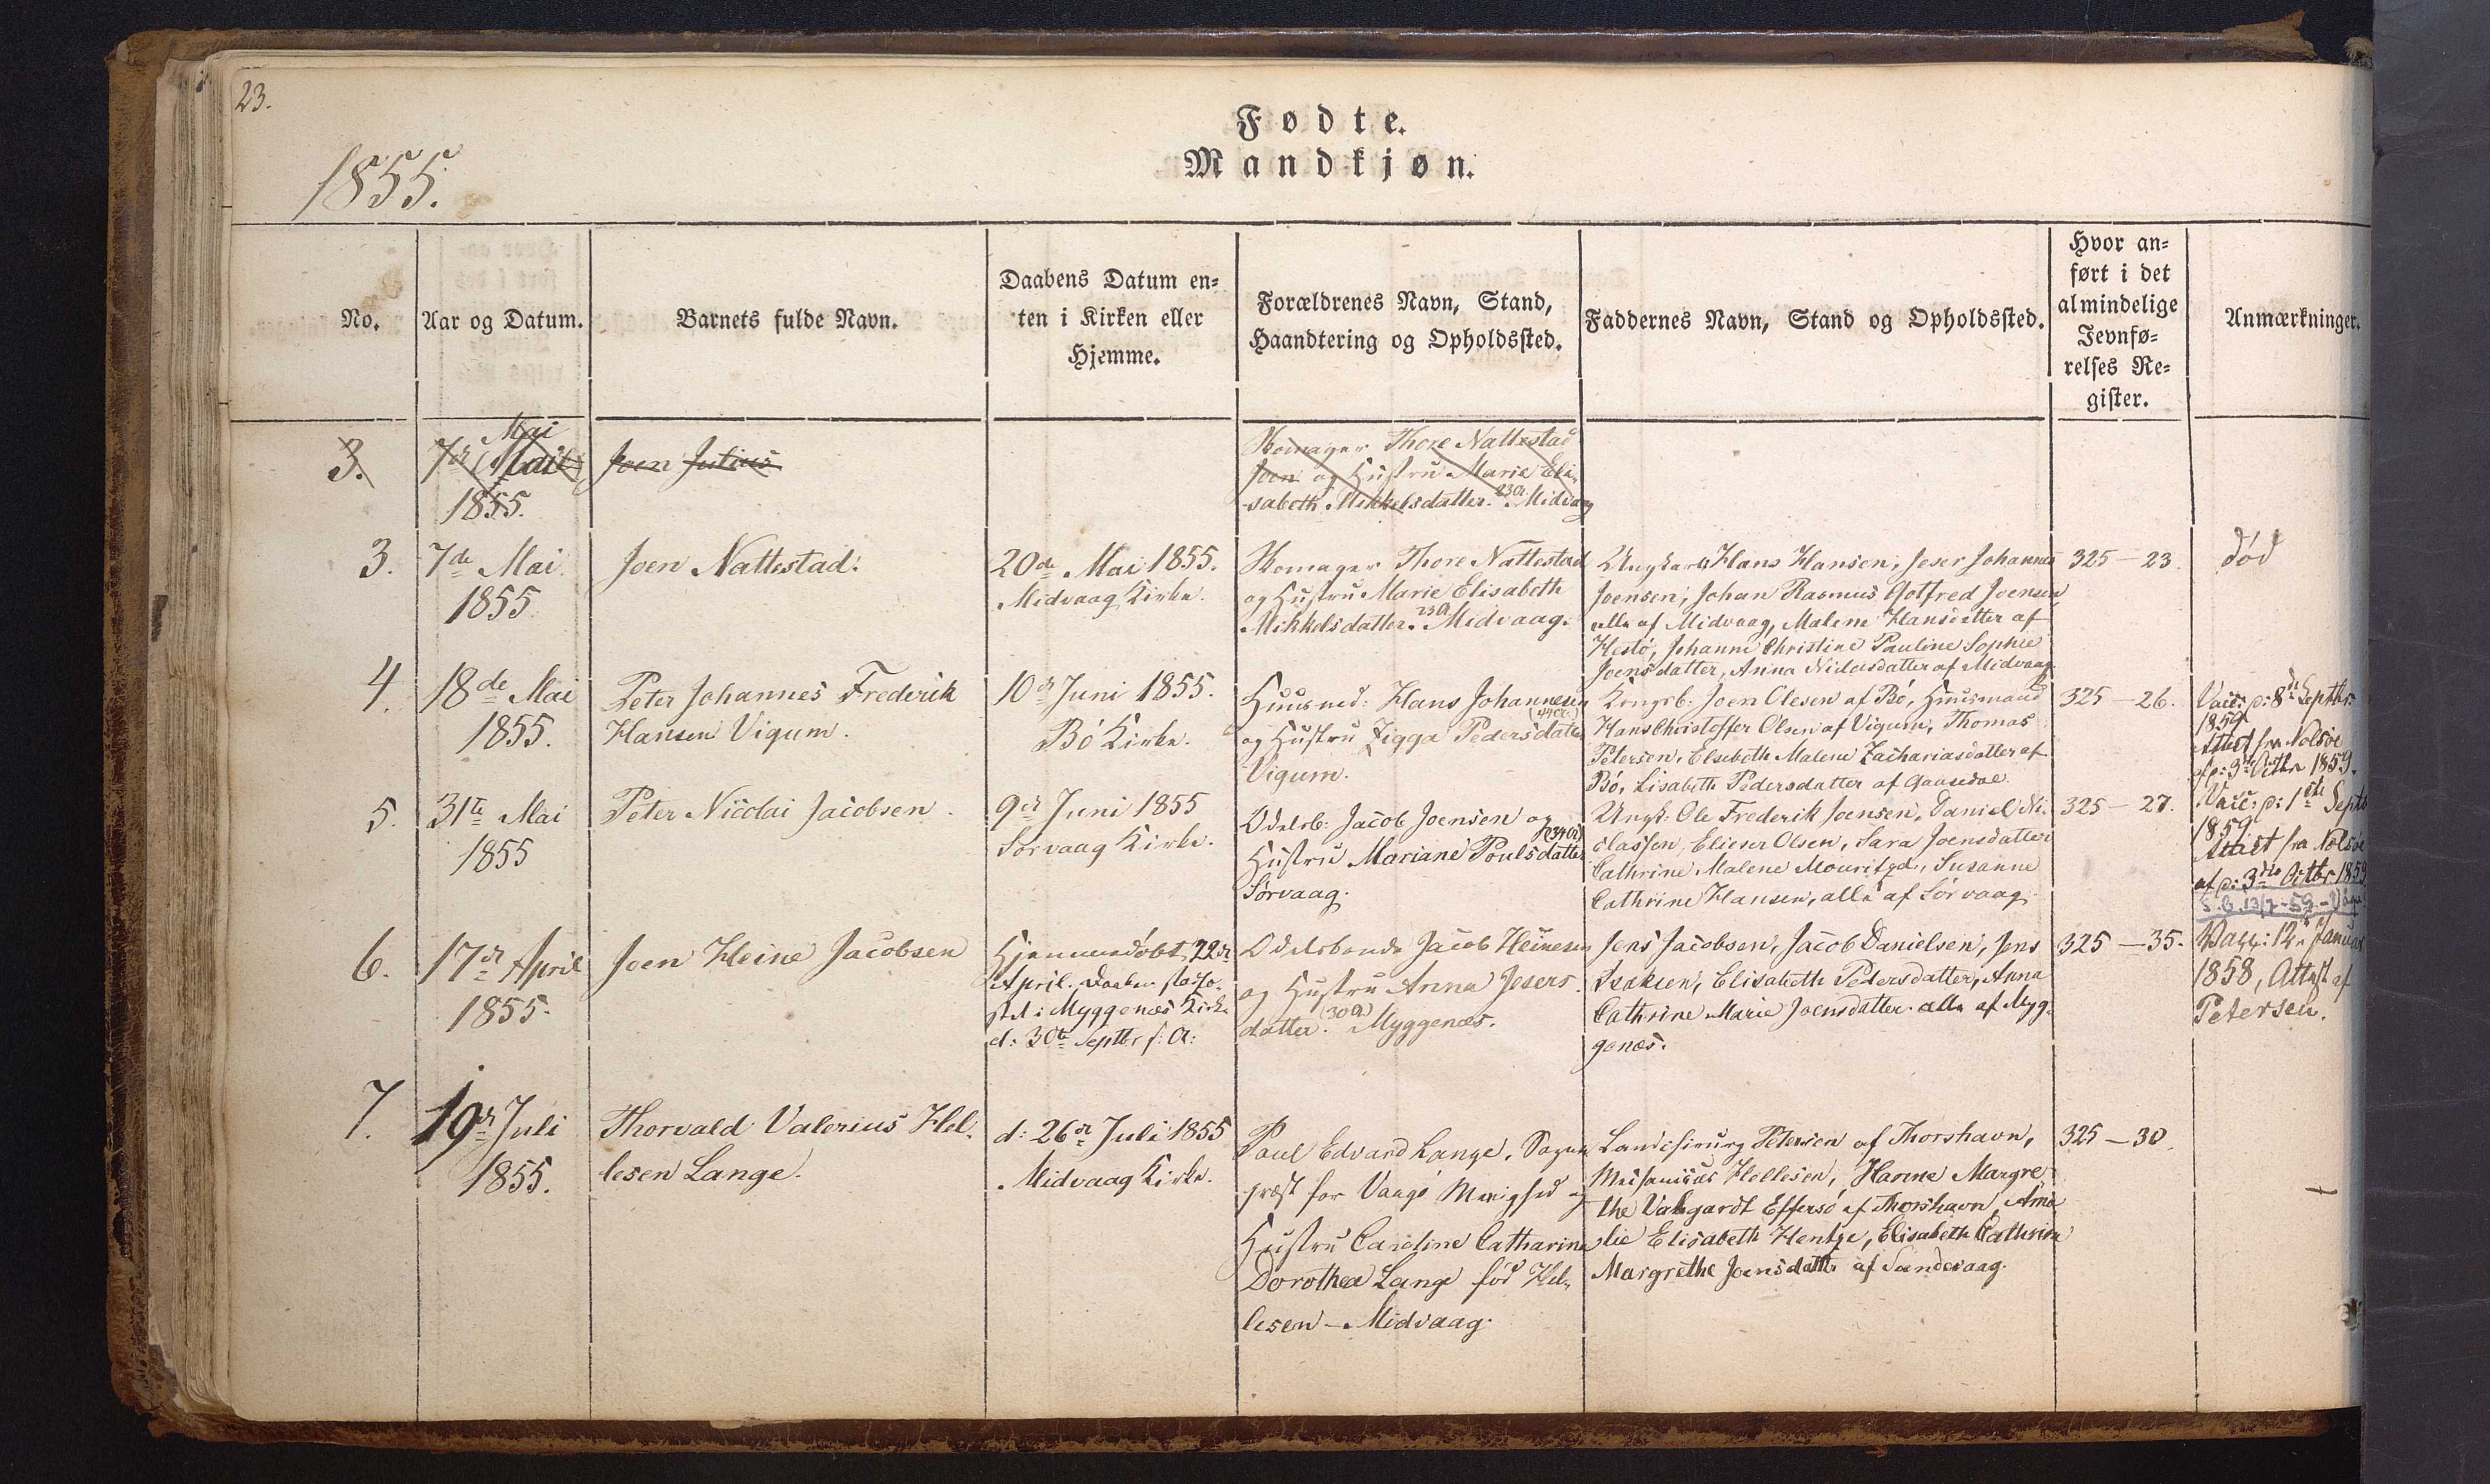 23.
1855.
Fødte.
Mandkjøn.
No.
Aar og Datum.
Barnets fulde Navn.
Daabens Datum en-
ten i Kirken eller
Hjemme.
Forældrenes Navn, Stand,
Haandtering og Opholdssted.
Faddernes Navn, Stand og Opholdssted.
Hvor an-
ført i det
almindelige
Jevnfø-
relses Re-
gister.
Anmærkninger.
3.
Mai
7de
1855.
Joen Julius
Skomager Thore Nattestad
Joen og Hustru Marie Eli-
sabeth Mikkelsdatter. 23 A Midvaag
3.
7de Mai
1855
Joen Nattestad.
20de Mai 1855.
Midvaag Kirke.
Skomager Thore Nattestad
og Hustru Marie Elisabeth
Mikkelsdatter. 23 A Midvaag.
Hans Hansen, Jeser Johannes
Joensen, Johan Rasmus Gotfred Joensen
alle af Midvaag, Malene Hansdatter af
Hestø, Johanne Christine Pauline Sophie
Joensdatter, Anna Niclasdatter af Midvaag.
325 - 23
død
4.
18de Mai
1855.
Peter Johannes Frederik
Hansen Vigum.
10de Juni 1855.
Bø Kirke.
Huusmd: Hans Johannesen
og Hustru Zigga Pedersdatter (44 A.)
Vigum.
Kongsb: Joen Olesen af Bø, Huusmand
Hans Christoffer Olsen af Vigum, Thomas
Petersen, Elsebeth Malene Zachariasdatter af
Bø, Lisabeth Pedersdatter af Gaasedal
325 - 26.
Vacc: p: 8de Septbr.
1859
Attest fra Nolsøe
af p: 3die Octbr 1859.
5.
31te Mai
1855
Peter Nicolai Jacobsen.
9de Juni 1855
Sørvaag Kirke.
Odelsb: Jacob Joensen og
Hustru Mariane Poulsdatter (34 A)
Sørvaag.
Ungk: Ole Frederik Joensen, Daniel Ni-
classen, Elieser Olsen, Sara Joensdatter
Cathrine Malene Mouritzd., Susanne
Cathrine Hansen, alle af Sørvaag.
325 - 27.
Vacc: p: 1ste Septb
1859
Attest fra Nolsøe
af p: 3die Octbr 1859
6.
17de April
1855.
Joen Heine Jacobsen
Hjemmedøbt 22de
April. Daaben stadfæ-
stet i Myggenæs Kirke
d: 30te Septbr s: A:
Odelsbonde Jacob Heinesen
og Hustru Anna Jesers-
datter. (30 A) Myggenæs.
Jens Jacobsen, Jacob Danielsen, Jens
Isaksen, Elisabeth Pedersdatter, Anna
Cathrine Marie Joensdatter alle af Myg-
genæs.
325 - 35.
Vacc: 12te Januar
1858, Attest af
Petersen.
7.
19de Juli
1855.
Thorvald Valerius Hel-
lesen Lange.
d: 26de Juli 1855
Midvaag Kirke.
Paul Edvard Lange, Sogne
præst for Vaagø Menighed og
Hustru Caroline Catharine
Dorothea Lange fød Hel-
lesen - Midvaag.
Landchirurg Petersen af Thorshavn,
Mechanicus Hellesen, Hanne Margre-
the Valsgardt Effersø af Thorshavn, Ama
lie Elisabeth Hentze, Elisabeth Cathrine
Margrethe Joensdatter af Sandevaag.
325 - 30